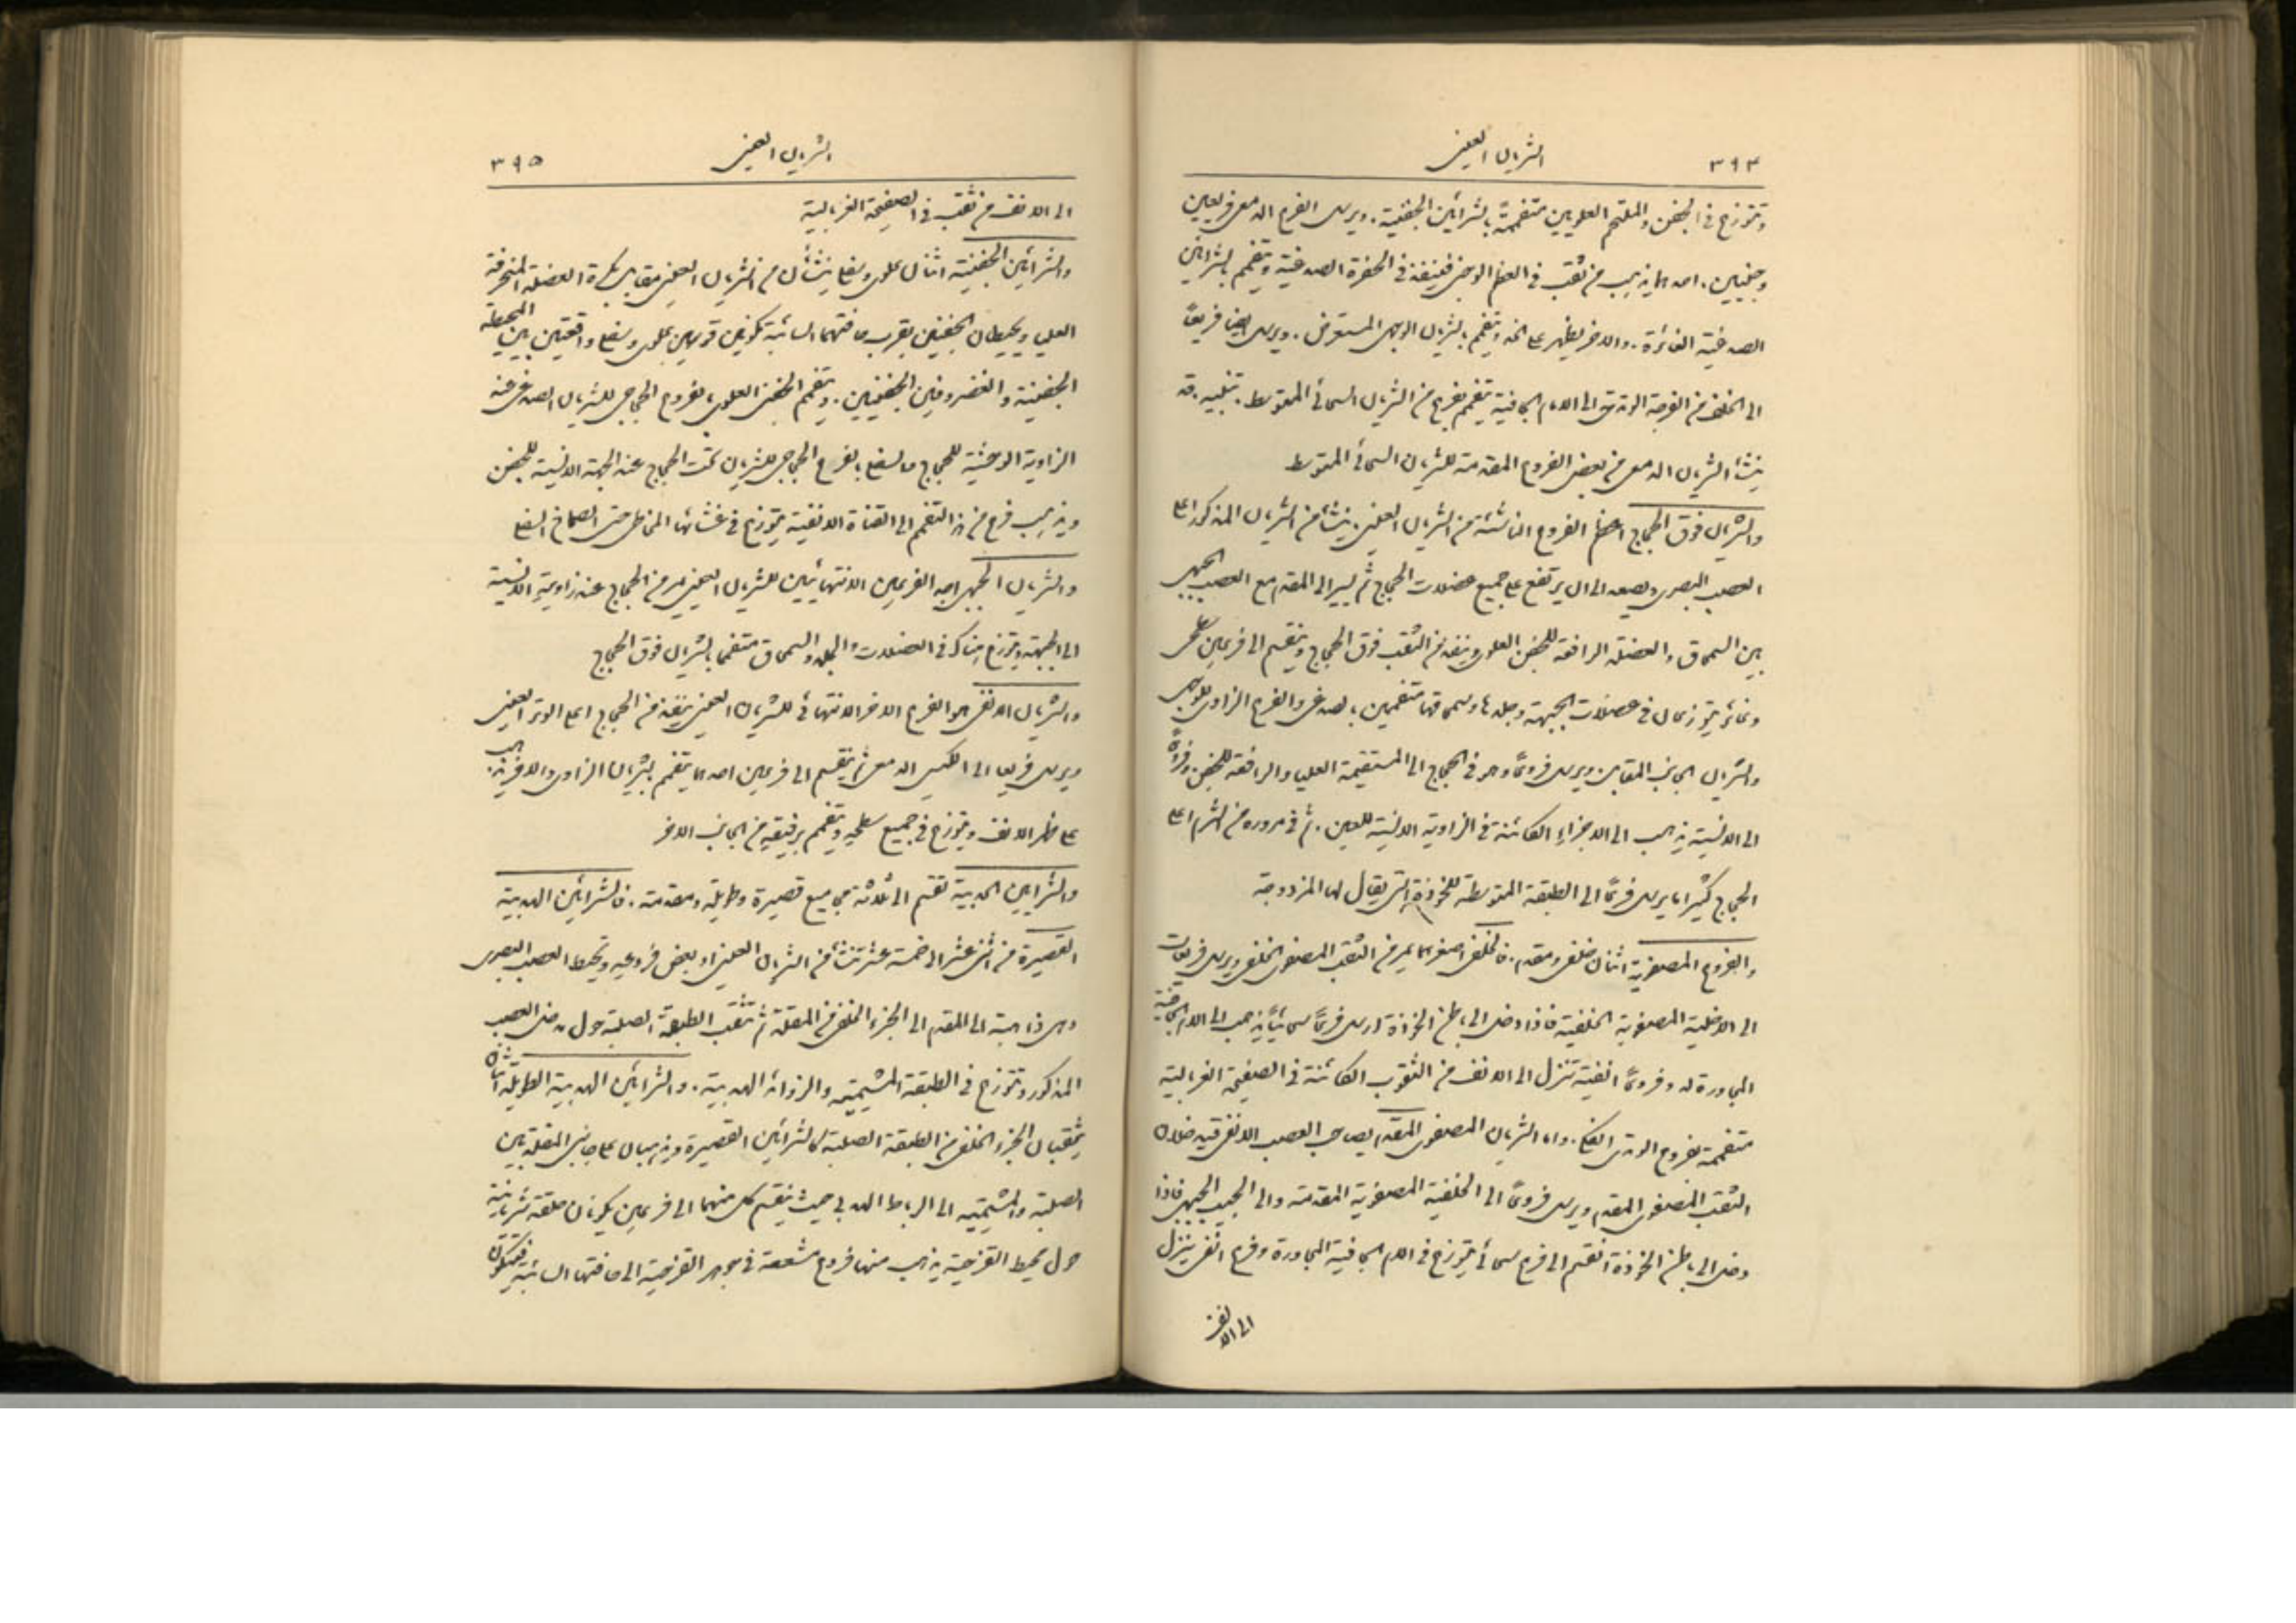 ٣٩٤
الشريان العيني
وتتوزع في الجفن والملتحم العلويين متفممة بالشرايين الجفنية. ويرسل الفرع الدمعي فريعين
وجنيين. احدهما يذهب من ثقب في العظم الوجني فينفذ في الحفرة الصدغية ويتفمم بالشرايين
الصدغية الغائرة. والاخر يظهر على الخد ويتفمم بالشريان الوجهي المستعرض. ويرسل ايضا فريعاً
الى الخلف من الفرجة الوتدية الى الام الجافية يتفمم بفرع من الشريان السحائي المتوسط. تنبيه. قد
ينشأ الشريان الدمعي من بعض الفروع المقدمة للشريان السحائي المتوسط
والشريان فوق الحجاج اعظم الفروع الناشئة من الشريان العيني. ينشأ من الشريان المذكور اعلى
العصب البصري ويصعد الى ان يرتفع على جميع عضلات الحجاج ثم يسير الى المقدم مع العصب الجبهي
بين السمحاق والعضلة الرافعة للجفن العلوي وينفذ من الثقب فوق الحجاج وينقسم الى فرعين سطحي
وغائر يتوزعان في عضلات الجبهة وجلدها وسمحاقها متفممين بالصدغي والفرع الزاوي للوجهي
والشريان الجانب المقابل ويرسل فروعاً وهو في الحجاج الى المستقيمة العليا والرافعة للجفن. وفرعاً
الى الانسية يذهب الى الاجزاء الكائنة في الزاوية الانسية للعين. ثم في مروره من الشرم اعلى
الحجاج كثيرا ما يرسل فرعاً الى الطبقة المتوسطة للخوذة التي يقال لها المزدوجة
والفروع المصفوية اثنان خلفي ومقدم. فالخلفي اصغرهما يمر من الثقب المصفوي الخلفي ويرسل فريعات
الى الاخلية المصفوية الخلفية فاذا وصل الى باطن الخوذة ارسل فرعاً سحائياً يذهب الى الام الجافية
المجاورة له وفروعاً انفية تنزل الى الانف من الثقوب الكائنة في الصفيحة الغربالية
متفممة بفروع الوتدي الفكي. واما الشريان المصفوي المقدم يصاحب العصب الانفي فيدخلان
الثقب المصفوي المقدم ويرسل فروعاً الى الخلفية المصفوية المقدمة والى الجيب الجبهي فاذا
وصل الى باطن الخوذة انقسم الى فرع سحائي يتوزع في الام الجافية المجاورة وفرع انفي ينزل
الى الانف
الشريان العيني
٣٩٥
الى الانف من ثقب في الصفيحة الغربالية
والشرايين الجفنية اثنان علوي وسفلي ينشأان من الشريان العيني مقابل بكرة العضلة المنحرفة
العليا ويحيطان الجفنين بقرب حافتهما السائبة مكونين قوسين علوي وسفلي واقعتين بين المحيطة
الجفنية والغضروفين الجفنيين. ويتفمم الجفني العلوي بفروع الحجاجي للشريان الصدغي عند
الزاوية الوحشية للحجاج والسفلي بالفرع الحجاجي للشريان تحت الحجاج عند الجهة الانسية للجفن
ويذهب فرع من هذا التفمم الى القناة الانفية يتوزع في غشائها المخاطي حتى الصماخ السفلي
والشريان الجبهي احد الفرعين الانتهائيين للشريان العيني يمر من الحجاج عند زاويته الانسية
الى الجبهة ويتوزع هناك في العضلات والجلد والسمحاق متفمما بالشريان فوق الحجاج
والشريان الانفي هو الفرع الاخر الانتهائي للشريان العيني ينفذ من الحجاج اعلى الوتر العيني
ويرسل فريعا الى الكيس الدمعي ثم ينقسم الى فرعين احدهما يتفمم بالشريان الزاوي والاخر يذهب
على ظهر الانف ويتوزع في جميع سطحه ويتفمم برفيقه من الجانب الاخر
والشرايين الهدبية تقسم الى ثلاثة مجاميع قصيرة وطويلة ومقدمة. فالشرايين الهدبية
القصيرة من اثني عشر الى خمسة عشر تنشأ من الشريان العيني او بعض فروعه وتحيط العصب البصري
وهي ذاهبة الى المقدم الى الجزء الخلفي من المقلة ثم تثقب الطبقة الصلبة حول مدخل العصب
المذكور وتتوزع في الطبقة المشيمية والزوائد الهدبية. والشرايين الهدبية الطويلة اثنان
يثقبان الجزء الخلفي من الطبقة الصلبة كالشرايين القصيرة ويذهبان على جانبي المقلة بين
الصلبة والمشيمية الى الرباط الهدبي حيث ينقسم كل منهما الى فرعين يكونان حلقة شريانية
حول محيط القزحية يذهب منها فروع مشععة في جوهر القزحية الى حافتها السائبة فتكون